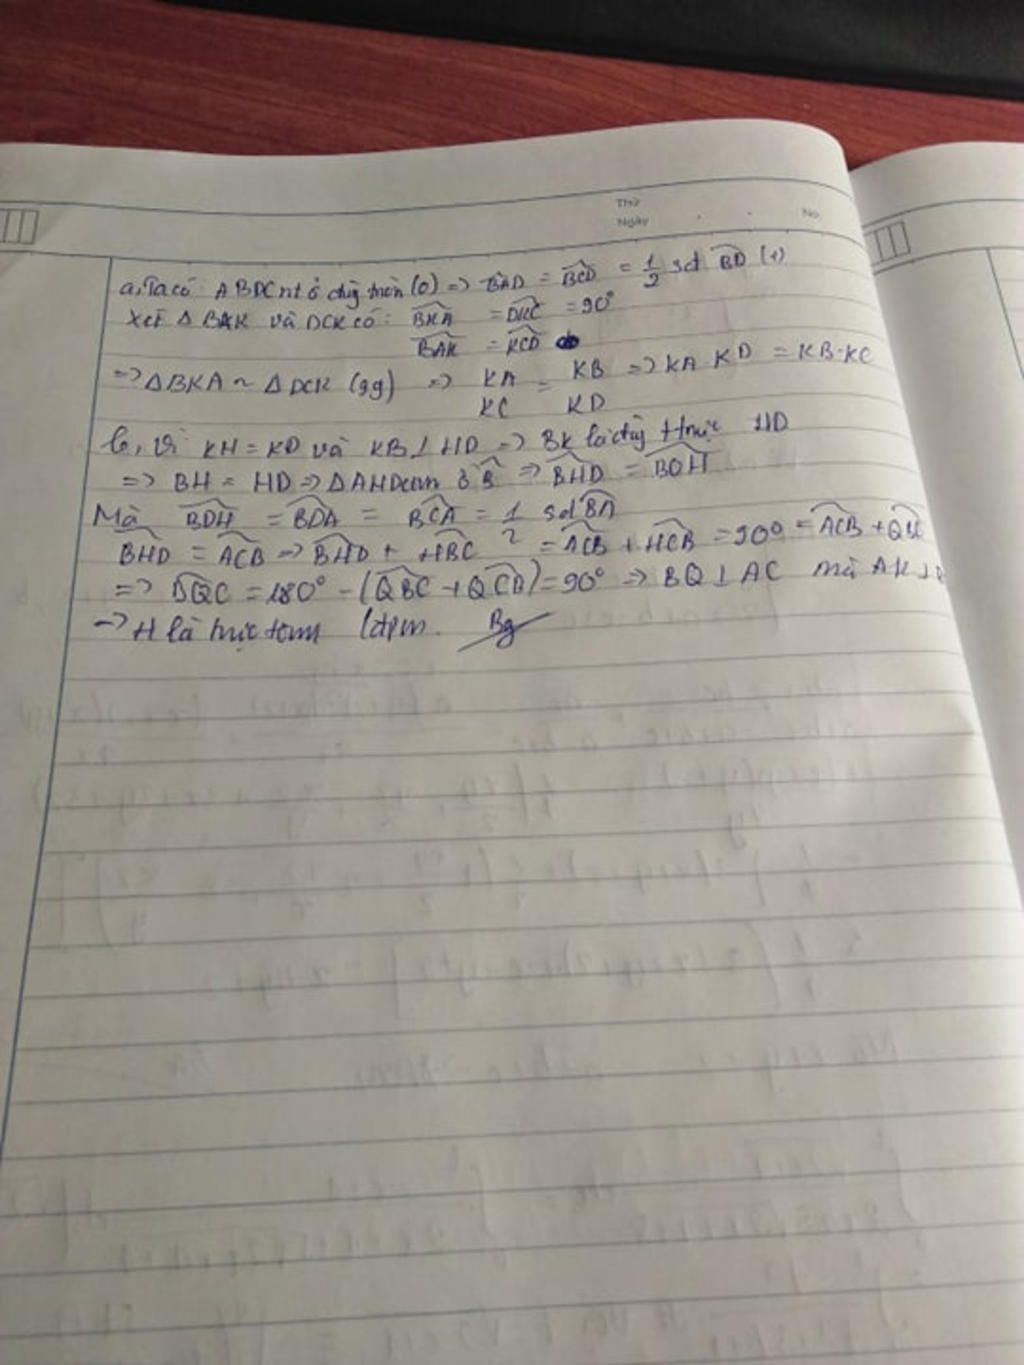 Thứ
Ngày . . No.
a, Ta có: ABDC nt đường tròn (O) => BAD = BCD = 1/2 sđ BD (1)
Xét Δ BAK và DCK có: BKA = DKC = 90°
BAK = KCD
=> Δ BKA ~ Δ DCK (gg) => KA/KC = KB/KD => KA.KD = KB.KC
b, Vì KH = KD và KB ⊥ HD => BK là đường trực HD
=> BH = HD => Δ AHD cân ở B => BHD = BOH
Mà BDH = BDA = BCA = 1/2 sđ BA
BHD = ACB => BHD + HBC = ACB + HCB = 90° = ACB + QBC
=> BQC = 180° - (QBC + QCB) = 90° => BQ ⊥ AC mà AK ⊥
-> H là trực tâm (đpcm.